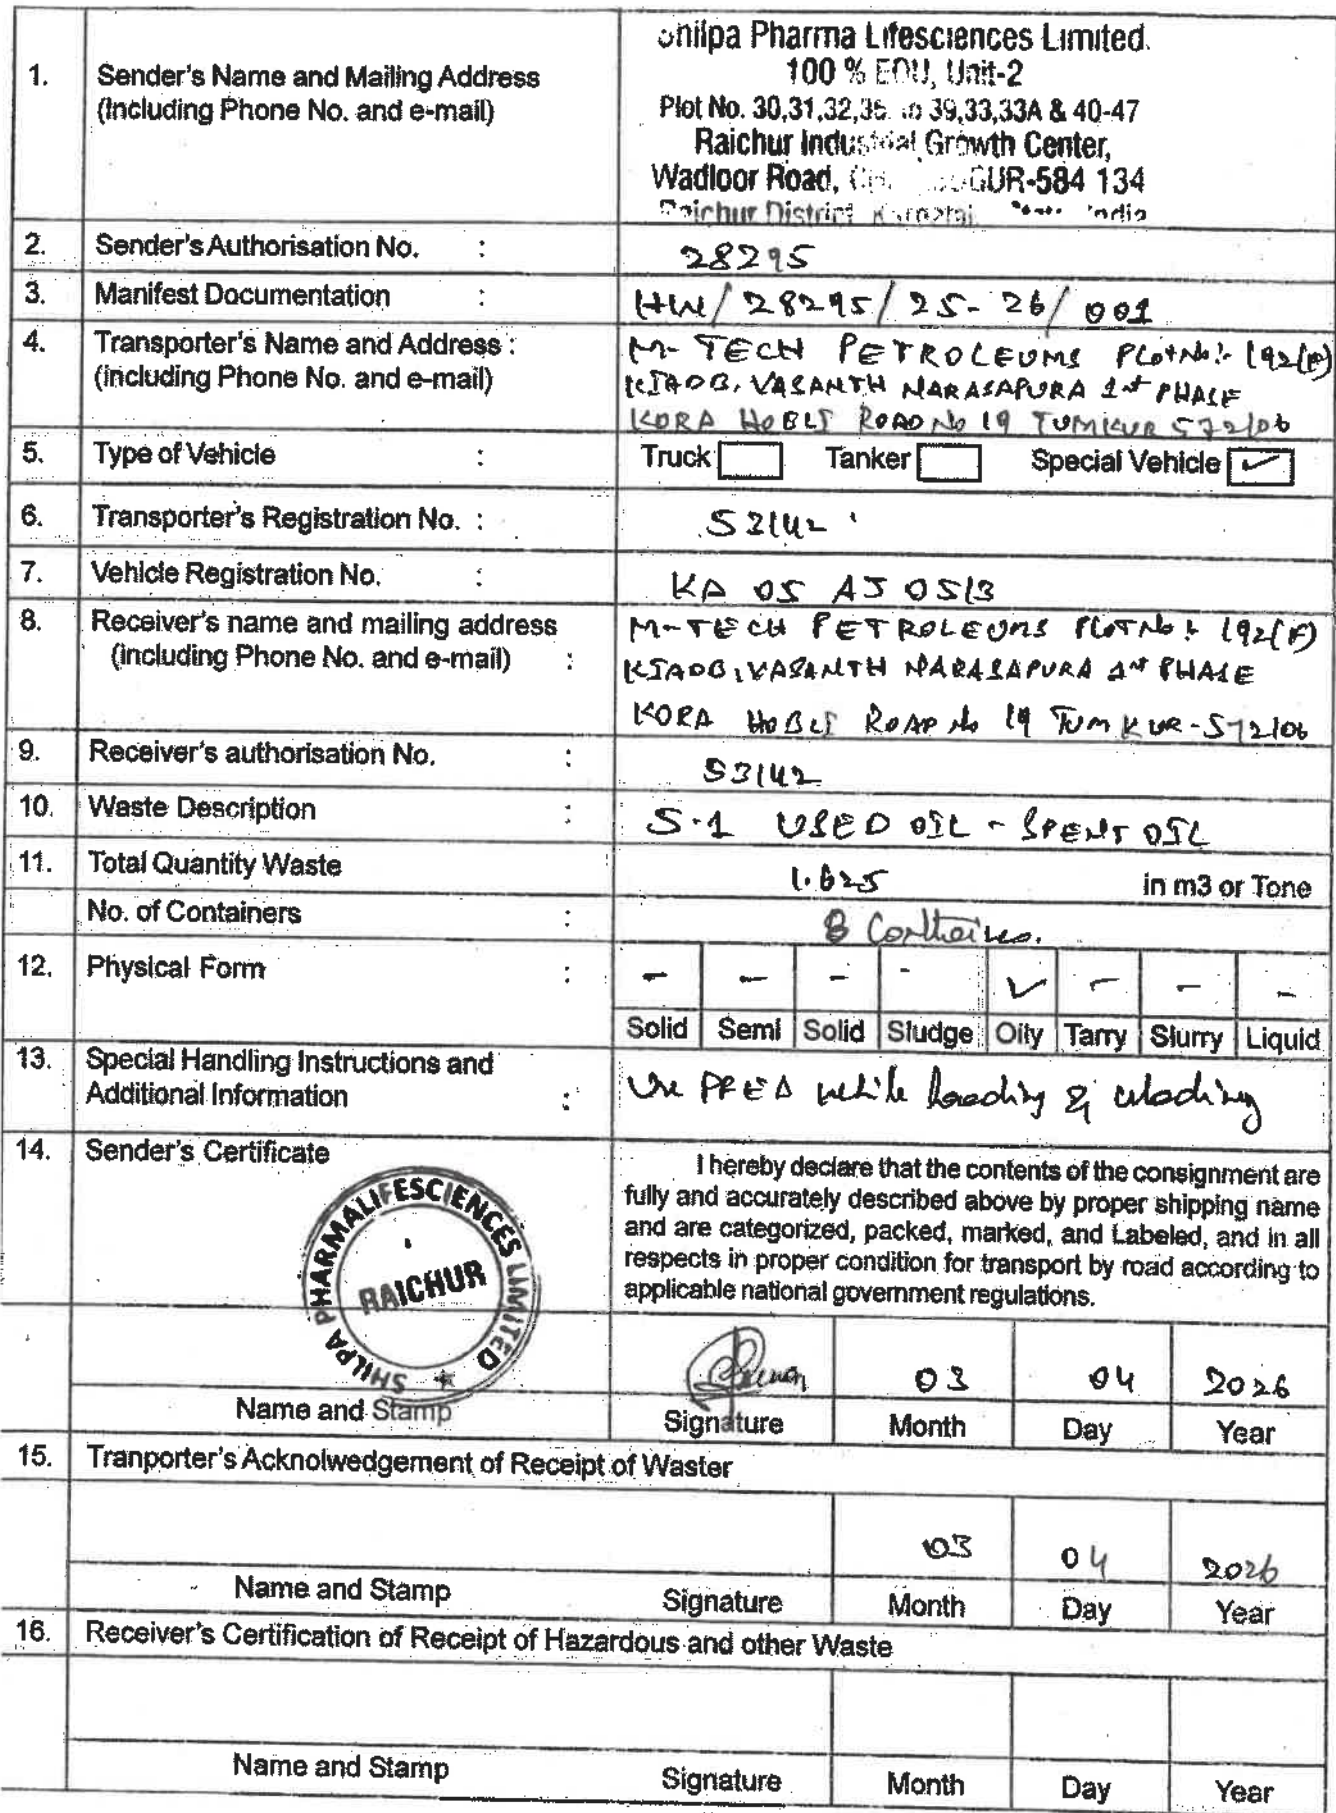 1. Sender's Name and Mailing Address
(Including Phone No. and e-mail)
Shilpa Pharma Lifesciences Limited.
100 % EOU, Unit-2
Plot No. 30,31,32,35 to 39,33,33A & 40-47
Raichur Industrial Growth Center,
Wadloor Road, GUR-584 134
Raichur District India
2. Sender's Authorisation No. : 28295
3. Manifest Documentation : HW/28295/25-26/001
4. Transporter's Name and Address :
(including Phone No. and e-mail)
M-TECH PETROLEUMS PLOT No:- 192(P)
KIADB, VASANTH NARASAPURA 1st PHASE
KORA HOBLI ROAD No 19 TUMKUR 572106
5. Type of Vehicle : Truck Tanker Special Vehicle ✓
6. Transporter's Registration No. : 53142
7. Vehicle Registration No. : KA 05 AJ 0513
8. Receiver's name and mailing address
(including Phone No. and e-mail) :
M-TECH PETROLEUMS PLOT No: 192(P)
KIADB, VASANTH NARASAPURA 1st PHASE
KORA HOBLI ROAD No 19 TUMKUR-572106
9. Receiver's authorisation No. : 53142
10. Waste Description : 5-1 USED OIL - SPENT OIL
11. Total Quantity Waste 1.625 in m3 or Tone
No. of Containers : 8
12. Physical Form : - - - - ✓ - - -
Solid Semi Solid Sludge Oily Tarry Slurry Liquid
13. Special Handling Instructions and
Additional Information :
Use while loading &
14. Sender's Certificate
I hereby declare that the contents of the consignment are
fully and accurately described above by proper shipping name
and are categorized, packed, marked, and Labeled, and in all
respects in proper condition for transport by road according to
applicable national government regulations.
SHILPA PHARMA LIFESCIENCES LIMITED
RAICHUR
03 04 2026
Name and Stamp Signature Month Day Year
15. Tranporter's Acknolwedgement of Receipt of Waster
03 04 2026
Name and Stamp Signature Month Day Year
16. Receiver's Certification of Receipt of Hazardous and other Waste
Name and Stamp Signature Month Day Year